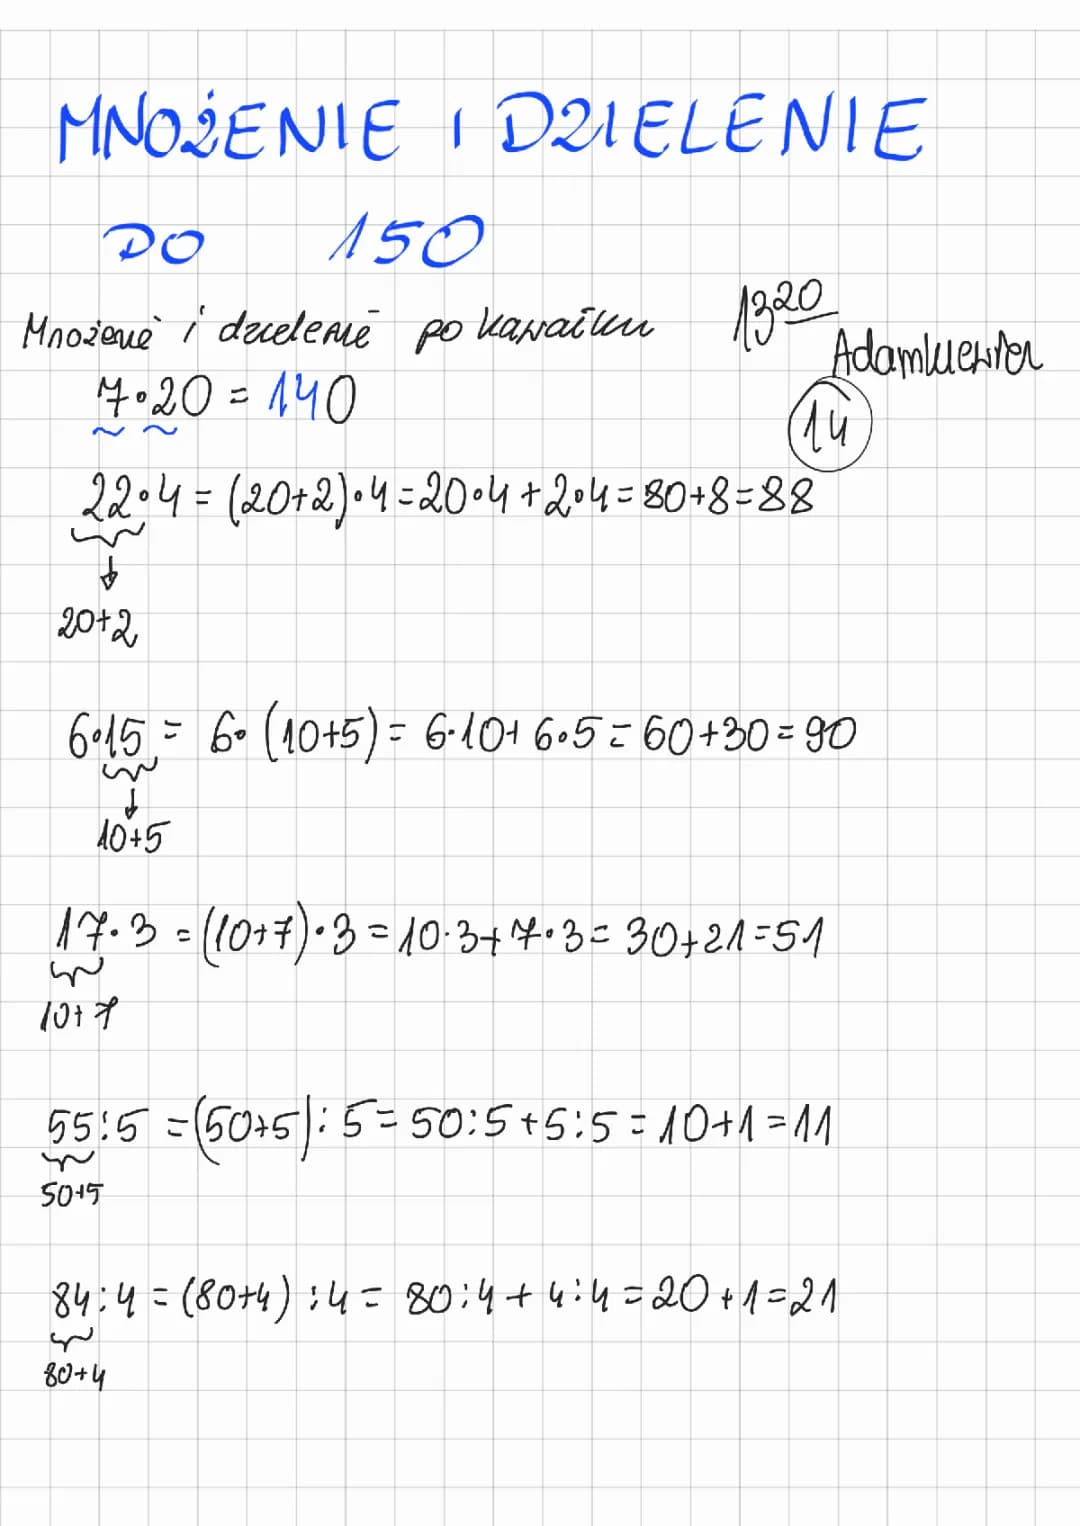 MNOŻENIE I DZIELENIE
DO 150
Mnożenie i dzielenie po kawałku
13 20
7·20 = 140
14
22·4 = (20+2)·4 = 20·4 + 2·4 = 80+8 = 88
20+2
6·15 = 6·(10+5) = 6·10 + 6·5 = 60+30 = 90
10+5
17·3 = (10+7)·3 = 10·3 + 7·3 = 30+21 = 51
10+7
55:5 = (50+5):5 = 50:5 + 5:5 = 10+1 = 11
50+5
84:4 = (80+4):4 = 80:4 + 4:4 = 20+1 = 21
80+4